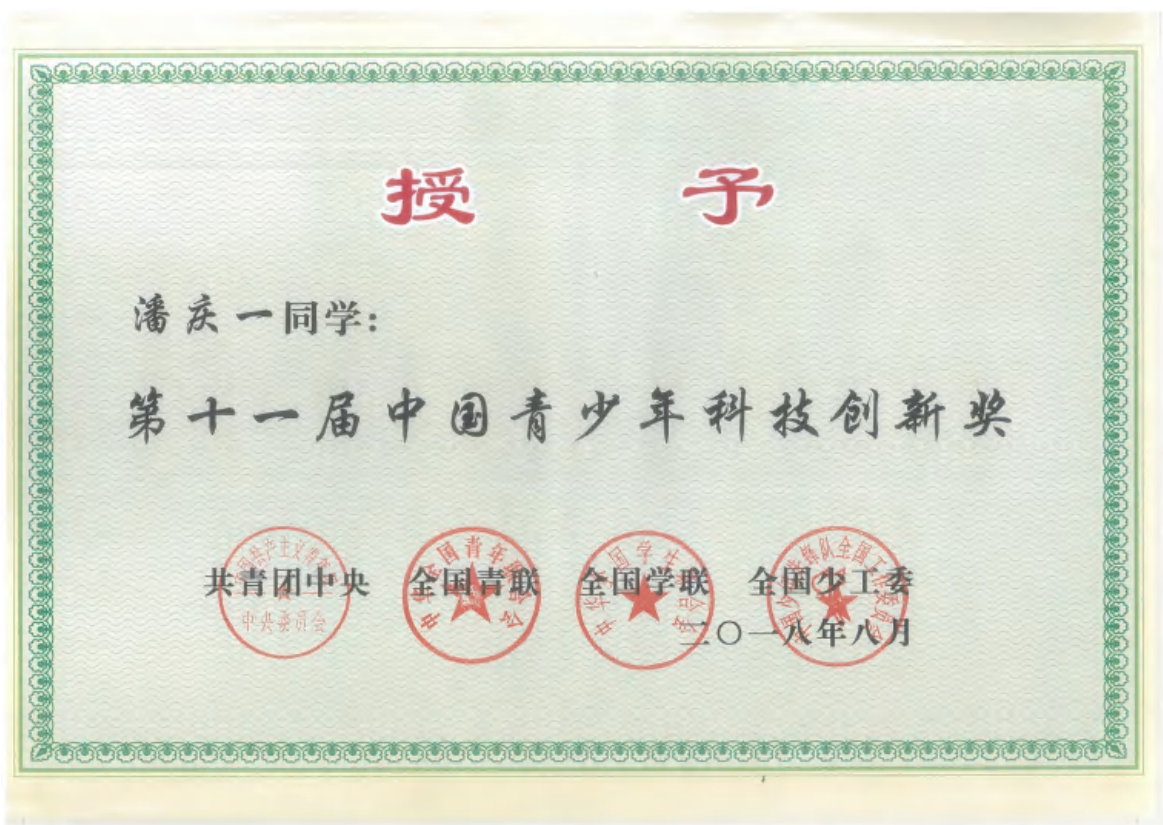 授 予
潘庆一同学:
第十一届中国青少年科技创新奖
共青团中央 全国青联 全国学联 全国少工委
二〇一八年八月
中央委员会